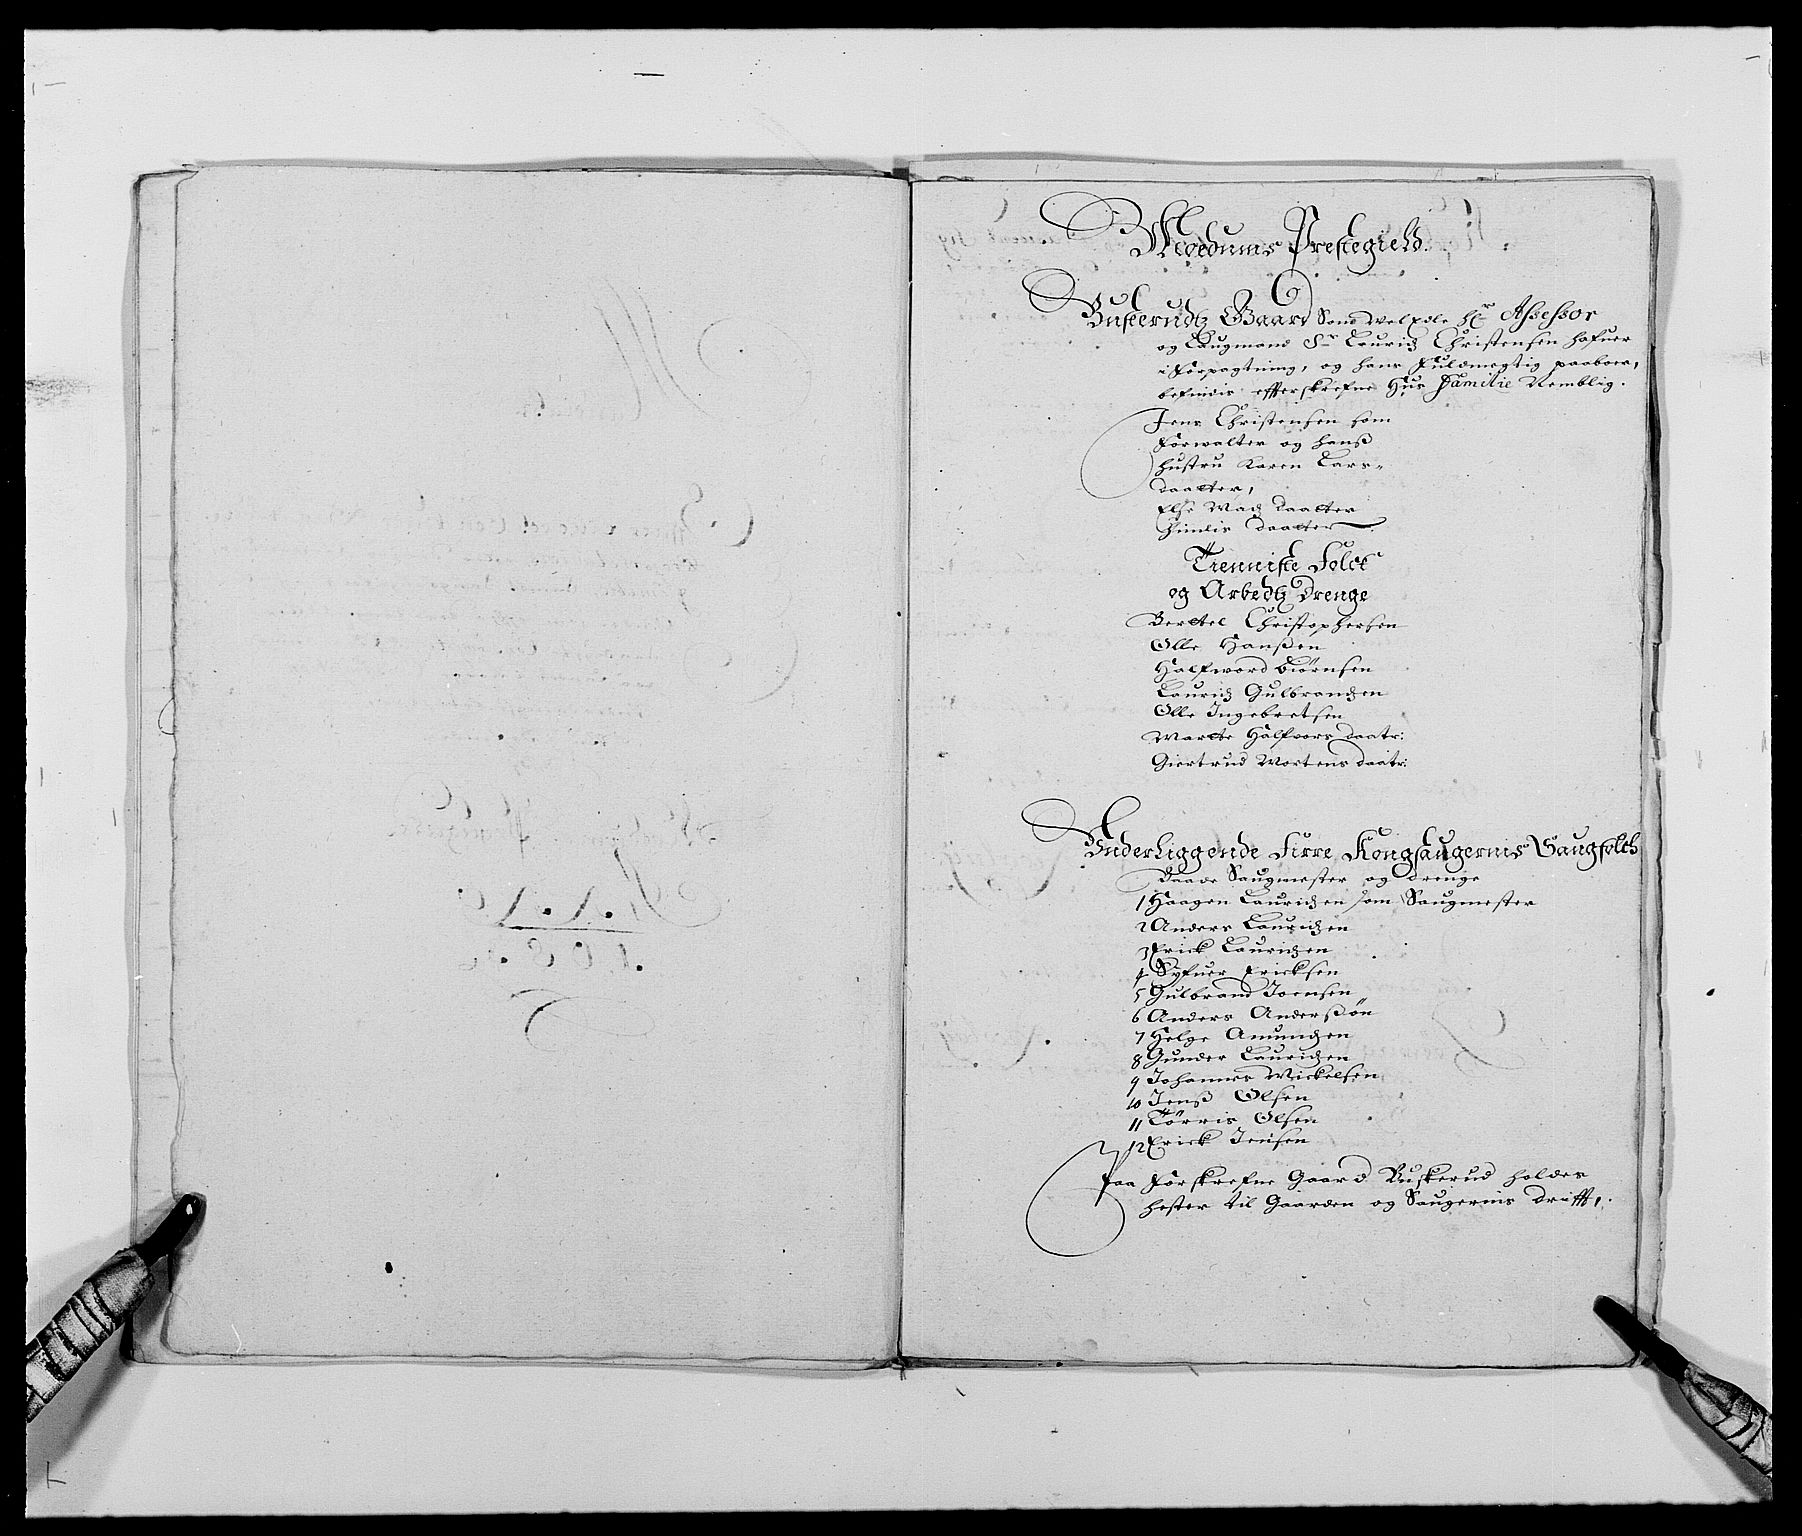 Moedums Prestegield.
Buskerudtz Gaard Som Welædle Hr Assessor
og Laugmand Sr Lauridz Christensen hafuer
i Forpagtning, og hans Fuldmegtig paaboer,
befindis effterskrefne Hus Familie Nemblig.
Jens Christensen som
Forwalter og hanß
hustru Karen Lars-
daatter,
Else Madz daatter
daatter
Tienniste Folck
og Arbedtz Drenge
Berttel Christophersen
Olle Hanßen
Halfword Biørnsen
Lauridz Gulbrandzen
Olle Ingebretsen
Martte Halfvors daatr:
Giertrud Mortens daatr:
Underliggende Firre Kongsaugernis Saugfolch
Baade Saugmester og drenge
1 Haagen Lauridzen som Saugmester
2 Anders Lauridzen
3 Erick Lauridzen
4 Syfuer Ericksen
5 Gulbrand Joensen
6 Anders Anderßøn
7 Helge Amundzen
8 Gunder Lauridzen
9 Johannes Mickelsen
10 Jenß Olsen
11 Tørris Olsen
12 Erick Jensen
Paa Forskrefne Gaard Buskerud holdes
hester til Gaarden og Saugernis Drifft,